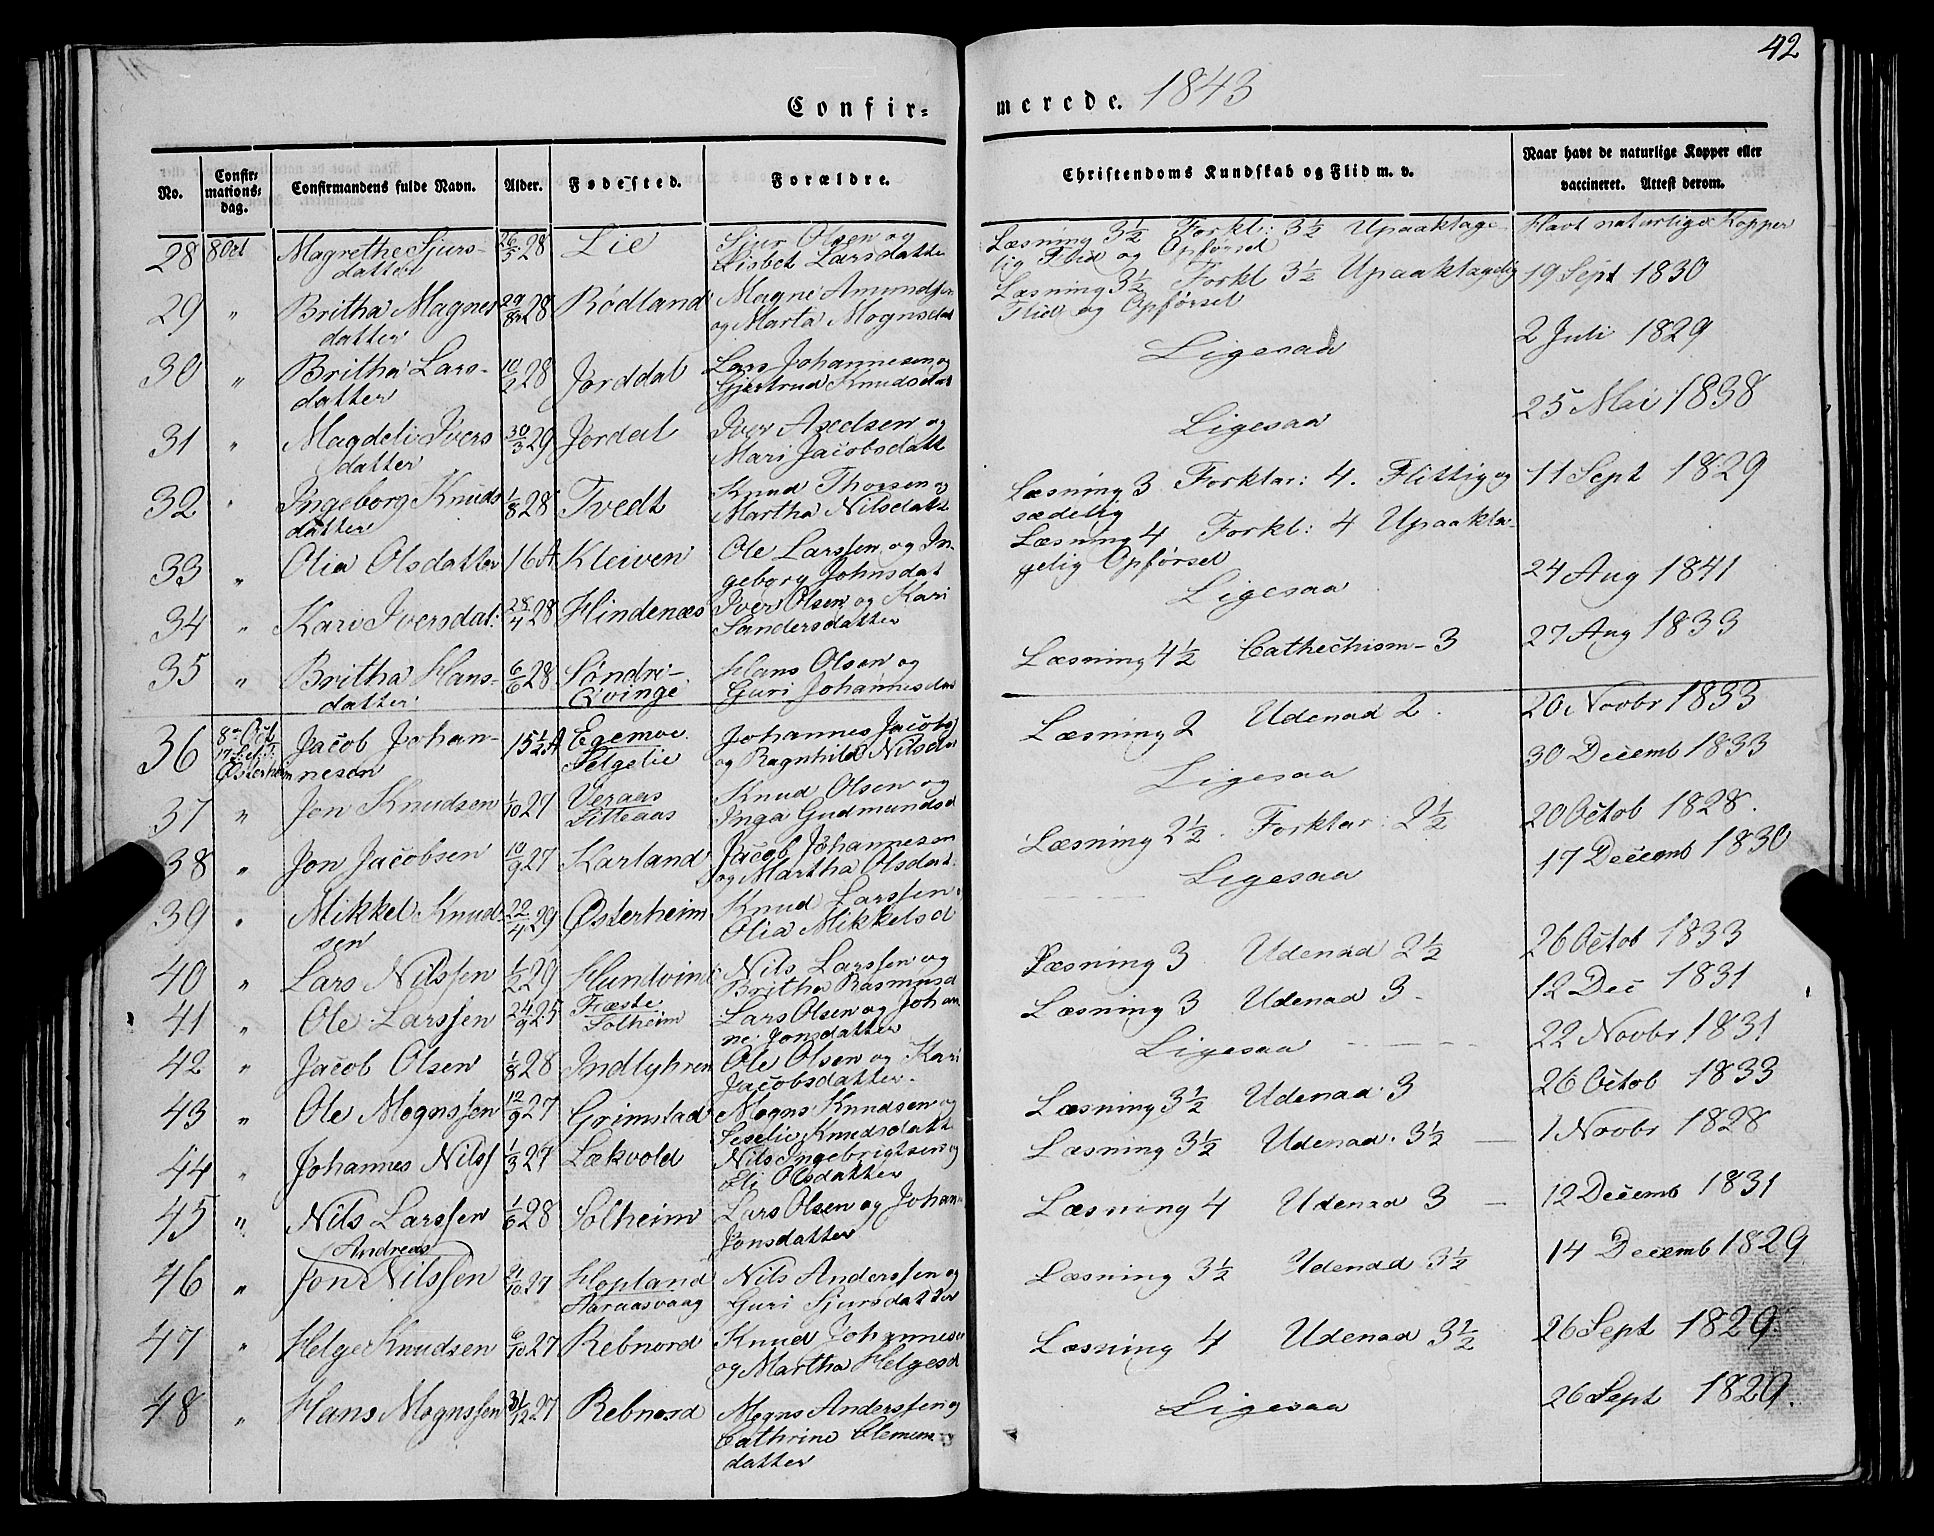 42
Confirmerede. 1843
No. Confirmationsdag. Confirmandens fulde Navn. Alder. Fødested. Forældre. Christendoms Kundskab og Flid m. v. Naar havt de naturlige Kopper eller vaccineret. Attest derom.
28 8 Oct Magrethe Sjurs- 26/5 28 Lie Sjur Olsen og Læsning 3½ Forkl: 3½ Upaaklage- Havt naturlige Kopper
datter Lisbet Larsdatte lig Flid og Opførsel
29 " Britha Magnes 28 Rødland Magne Amundsen Læsning 3½ Forkl 3½ Upaaklagelig 19 Sept 1830
datter og Marta Mognsdat Flid og Opførsel
30 " Britha Lars- 10/2 28 Jorddal Lars Johannesen og Ligesaa 2 Juli 1829
datter Gjertrud Knudsdat
31 " Magdeli Ivers 30/3 29 Jordal Iver Axelsen og Ligesaa 25 Mai 1838
datter Mari Jacobsdatt
32 " Ingeborg Knuds 1/8 28 Tvedt Knud Thorsen og Læsning 3 Forklar: 4. Flittig og 11 Sept 1829
datter Martha Nilsdatt sædelig
33 " Olia Olsdatter 16 A Kleiven Ole Larssen og In- Læsning 4 Forkl: 4 Upaakla- 24 Aug 1841
geborg Johnsdat gelig Opførsel
34 " Kari Iversdat: 28/4 28 Hindenæs Iver Olsen og Kari Ligesaa 27 Aug 1833
Sandersdatter
35 " Britha Hans- 6/6 28 Søndri- Hans Olsen og Læsning 4½ Cathechism- 3
datter Qvinge Guri Johannesdat
36 8 Oct Jacob Johan- 15½ A Egemoe Johannes Jacobs Læsning 2 Udenad 2. 20 Novbr 1833
Østerheim nesen Felgelie og Ragnhild Nilsdat
37 " Jon Knudsen 1/10 27 Veraas Knud Olsen og Ligesaa 30 Decemb 1833
Litleaas Inga Gudmundsd
38 " Jon Jacobsen 10/9 27 Karland Jacob Johannesen Læsning 2½. Forklar: 2½ 20 Octob 1828.
og Martha Olsdat.
39 " Mikkel Knud- 22/4 29 Østerheim Knud Larssen Ligesaa 17 Decemb 1830
sen Olia Mikkelsd
40 " Lars Nilssen 1/2 29 Hundvin Nils Larssen og Læsning 3 Udenad 2½ 26 Octob 1833
Britha Rasmusd
41 " Ole Larssen 24/9 25 Fræste Lars Olsen og Johan Læsning 3 Udenad 3- 12 Dec 1831
Solheim ne Jonsdatter
42 " Jacob Olsen 1/8 28 Indlyhren Ole Olsen og Kari Ligesaa 22 Novbr 1831
Jacobsdatter.
43 " Ole Mognssen 12/9 27 Grimstad Mogns Knudsen og Læsning 3½ Udenad 3 26 Octob 1833
Seselie Knudsdatt
44 " Johannes Nilss 1/3 27 Lækvold Nils Ingebrigtsen og Læsning 3½ Udenad. 3½ 1 Novbr 1828
Eli Olsdatter
45 " Nils Larssen 1/6 28 Solheim Lars Olsen og Johan Læsning 4 Udenad 3 12 Decemb 1831
Jonsdatter
Andreas
46 " Jon Nilssen 27 Hopland Nils Anderssen og Læsning 3½ Udenad 3½ 14 Decemb 1829
Aaraasvaag Guri Sjursdatter
47 " Helge Knudsen 6/10 27 Rebnord Knud Johannese Læsning 4 Udenad 3½ 26 Sept 1829
og Martha Helgesd
48 " Hans Mognssen 31/12 27 Rebnord Mogns Anderssen og Ligesaa 26 Sept 1829.
Cathrine Clemem
datter